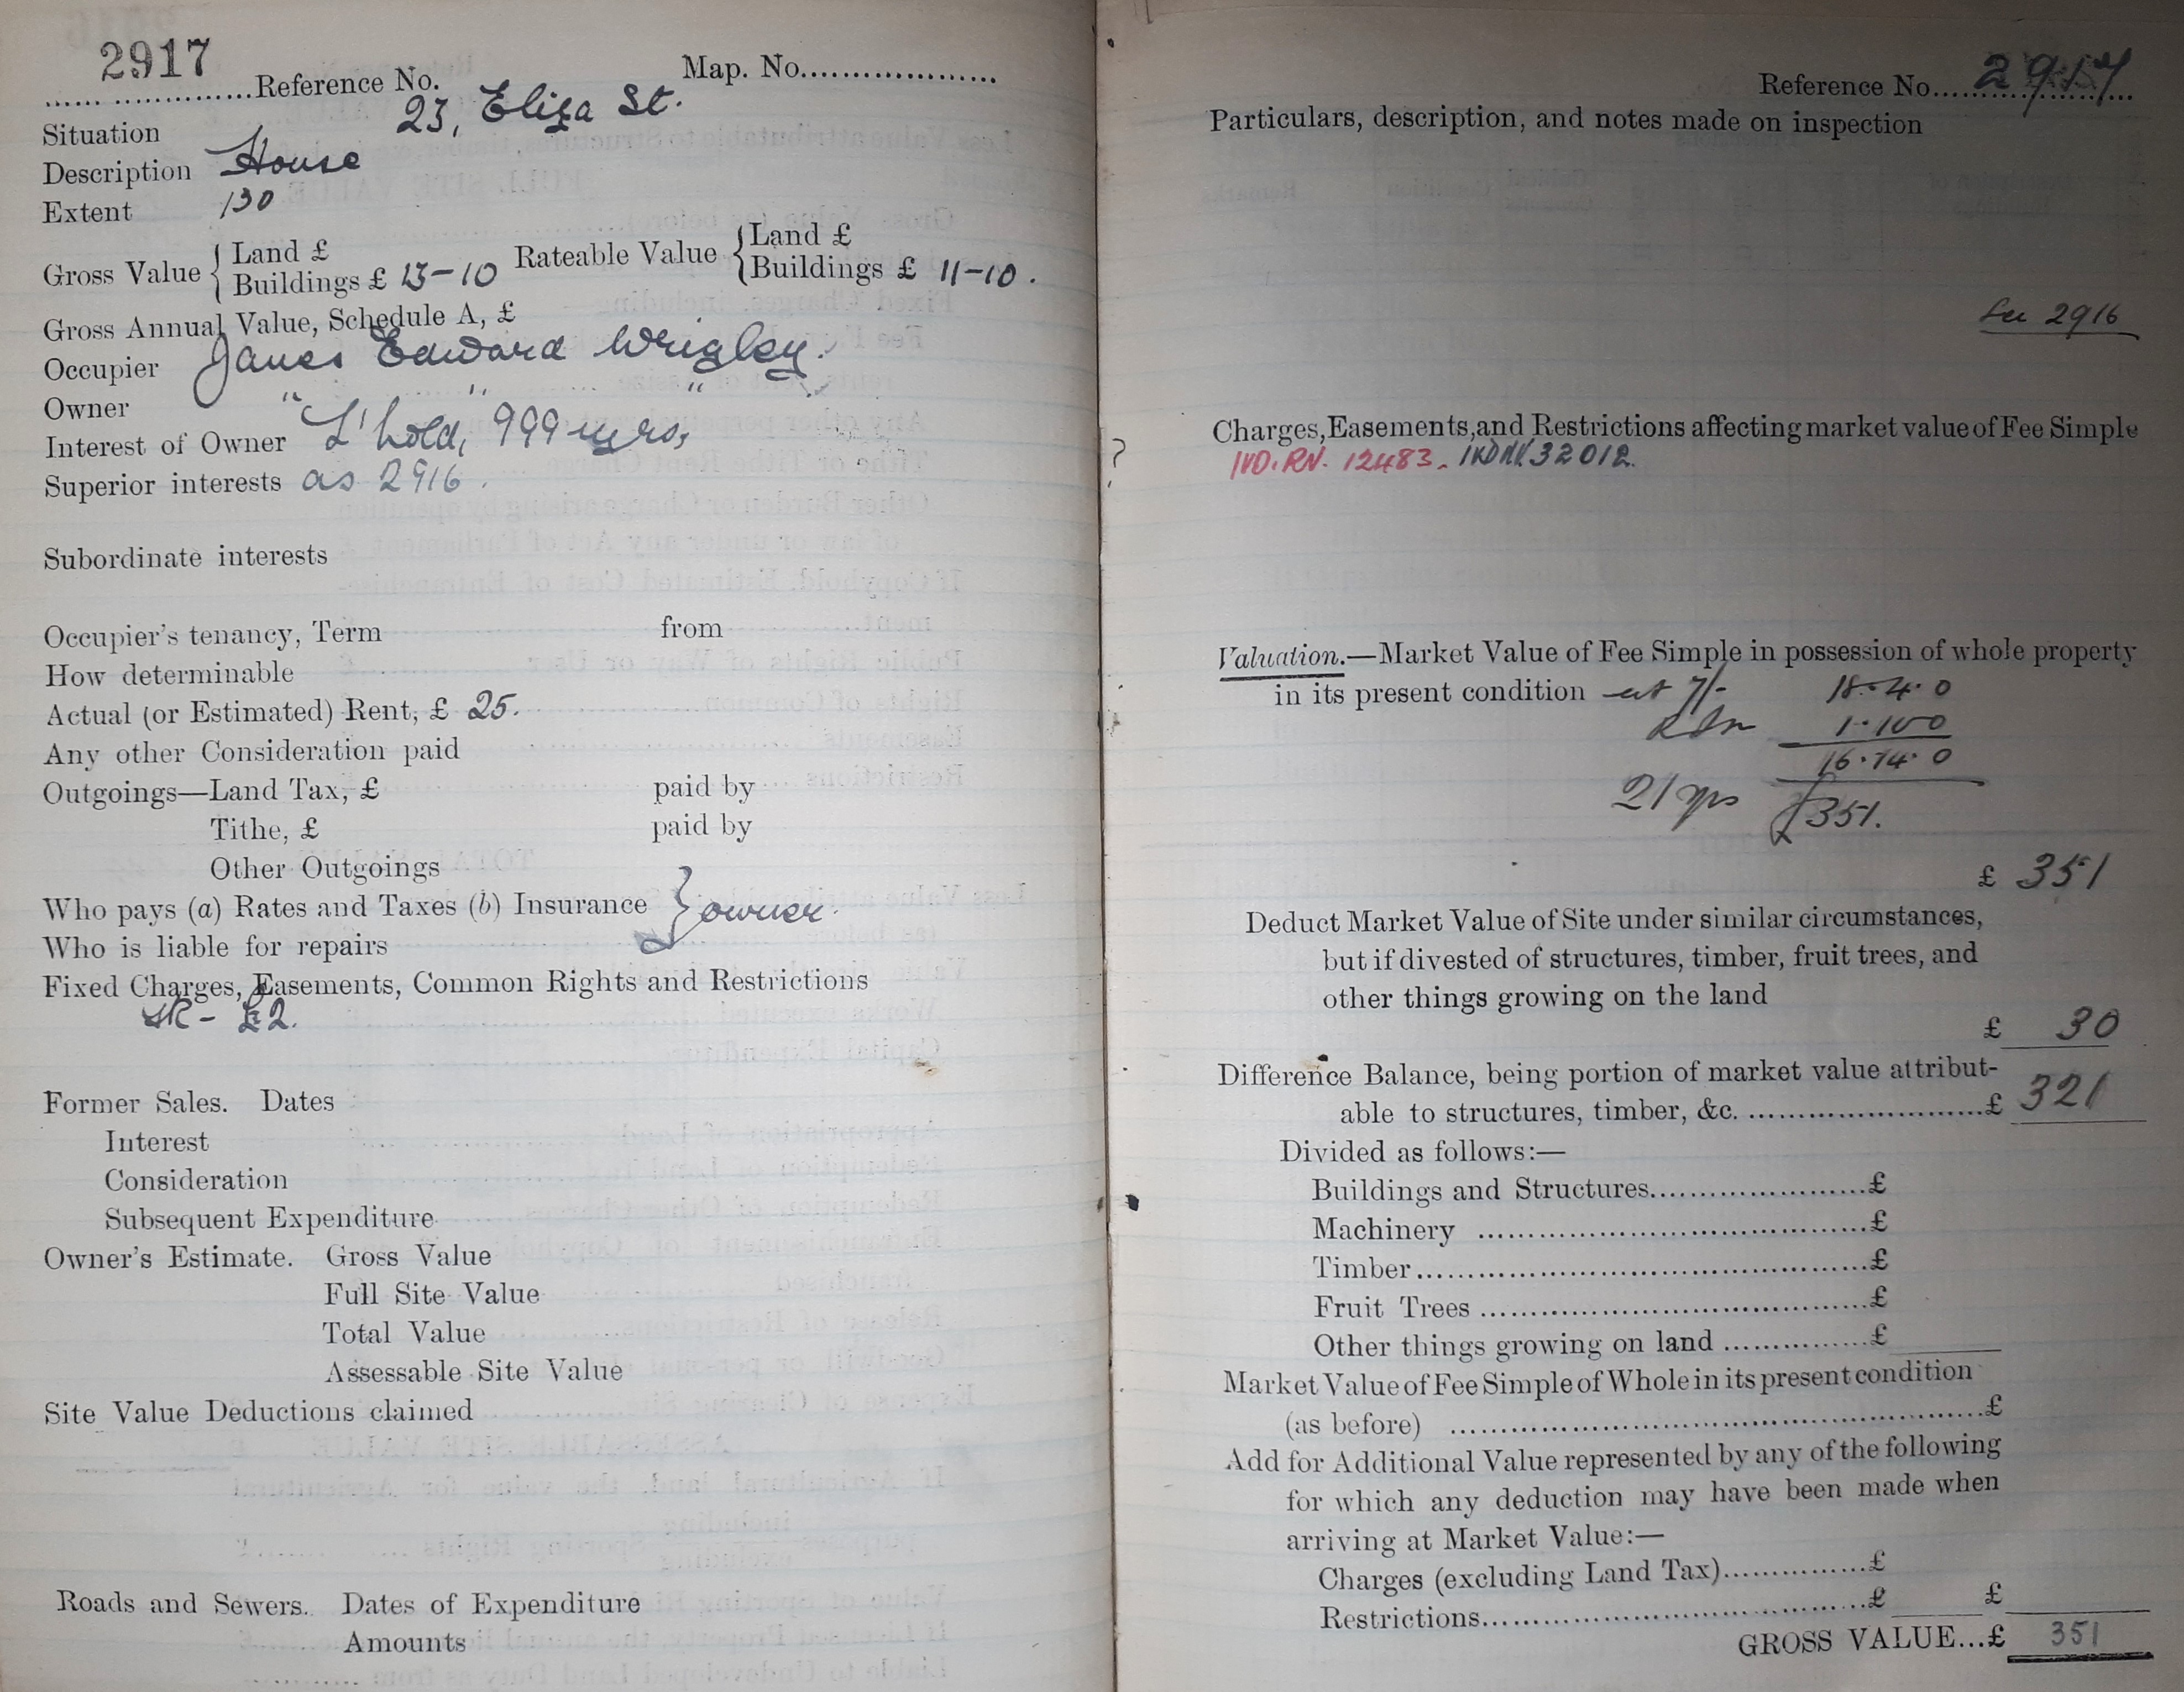 2917
...... ...............Reference No.
Map. No.....................
Situation 23, Eliza St.
Description House
Extent 130
Gross Value { Land £
Buildings £ 13-10
Rateable Value { Land £
Buildings £ 11-10.
Gross Annual Value, Schedule A, £
Occupier James Edward Wrigley.
Owner " " "
Interest of Owner L'hold, 999 yrs,
Superior interests as 2916.
Subordinate interests
Occupier's tenancy, Term from
How determinable
Actual (or Estimated) Rent, £ 25.
Any other Consideration paid
Outgoings—Land Tax, £ paid by
Tithe, £ paid by
Other Outgoings
Who pays (a) Rates and Taxes (b) Insurance } owner.
Who is liable for repairs
Fixed Charges, Easements, Common Rights and Restrictions
£2.
Former Sales. Dates
Interest
Consideration
Subsequent Expenditure
Owner's Estimate. Gross Value
Full Site Value
Total Value
Assessable Site Value
Site Value Deductions claimed
Roads and Sewers. Dates of Expenditure
Amounts
Reference No. 2917
Particulars, description, and notes made on inspection
See 2916
Charges, Easements, and Restrictions affecting market value of Fee Simple
IVD. RN. 12483. 32012.
Valuation.—Market Value of Fee Simple in possession of whole property
in its present condition at 7/- 18.4.0
1.10.0
16.14.0
21 yrs £351.
£ 351
Deduct Market Value of Site under similar circumstances,
but if divested of structures, timber, fruit trees, and
other things growing on the land
£ 30
Difference Balance, being portion of market value attribut-
able to structures, timber, &c. ........................£ 321
Divided as follows:—
Buildings and Structures......................£
Machinery .......................................£
Timber.............................................£
Fruit Trees .......................................£
Other things growing on land ...............£
Market Value of Fee Simple of Whole in its present condition
(as before) .....................................................£
Add for Additional Value represented by any of the following
for which any deduction may have been made when
arriving at Market Value:—
Charges (excluding Land Tax)...............£
Restrictions.......................................£ £
GROSS VALUE...£ 351